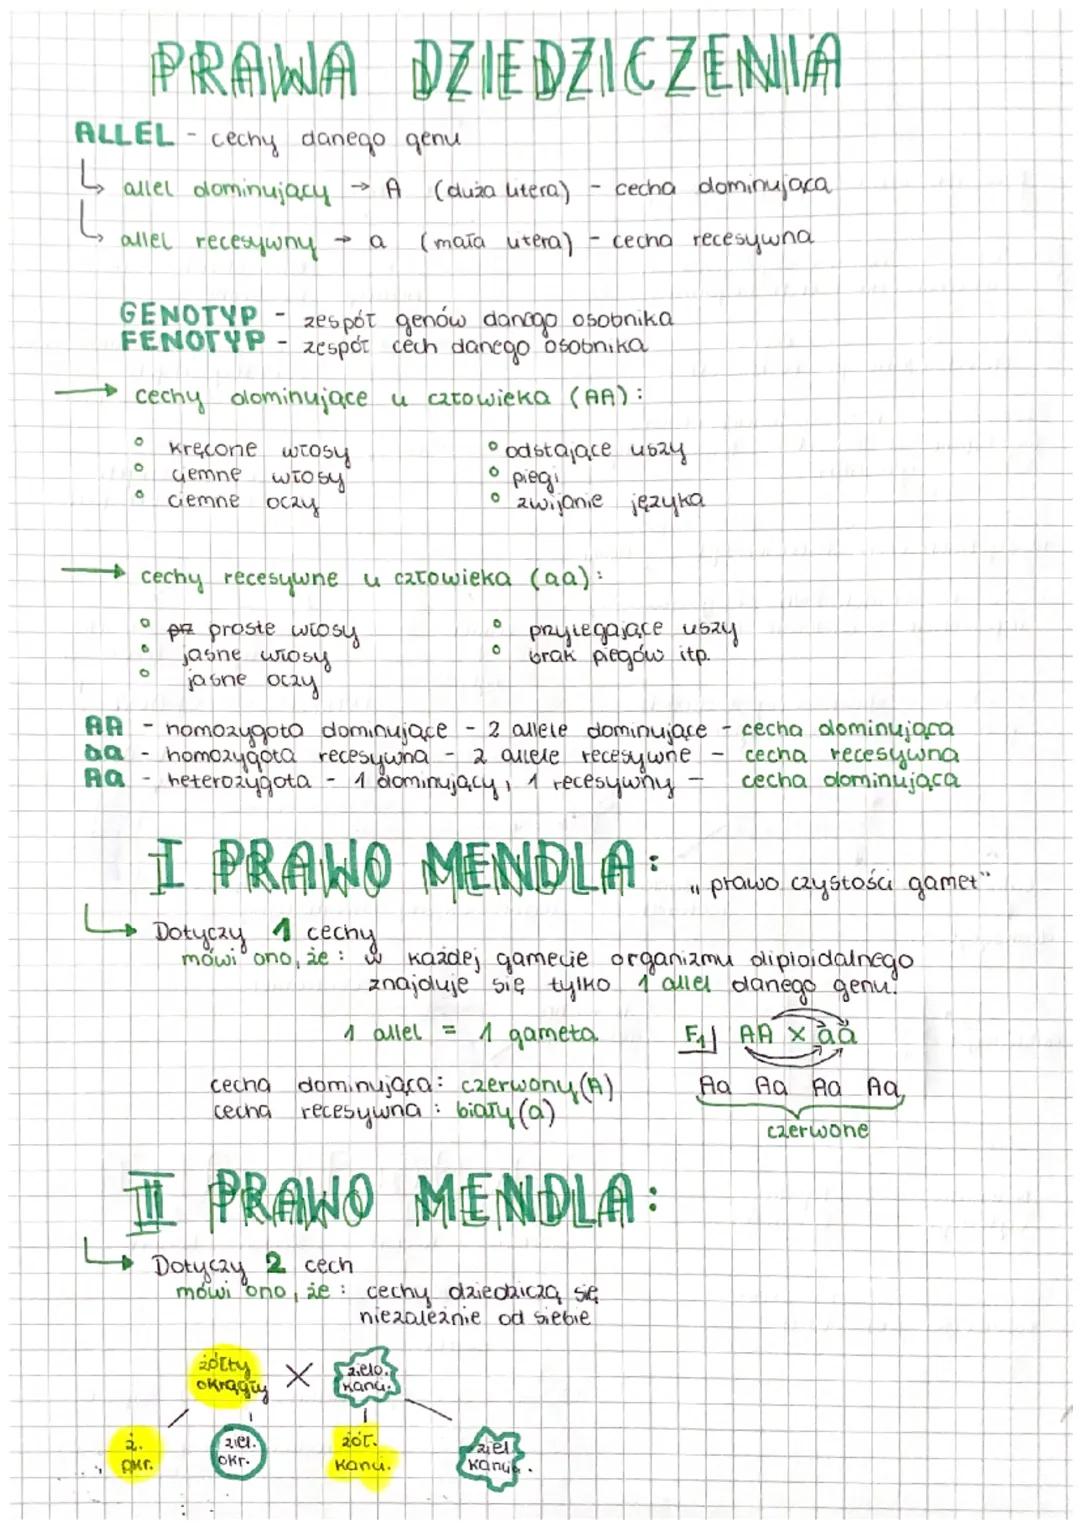 PRAWA DZIEDZICZENIA
ALLEL - cechy danego genu
allel dominujący → A (duża litera) - cecha dominująca
allel recesywny → a (mała litera) - cecha recesywna
GENOTYP - zespół genów danego osobnika
FENOTYP - zespół cech danego osobnika
→ cechy dominujące u człowieka (AA):
° kręcone włosy
° ciemne włosy
° ciemne oczy
° odstające uszy
° piegi
° zwijanie języka
→ cechy recesywne u człowieka (aa):
° proste włosy
° jasne włosy
° jasne oczy
° przylegające uszy
° brak piegów itp.
AA - homozygota dominujące - 2 allele dominujące - cecha dominująca
aa - homozygota recesywna - 2 allele recesywne - cecha recesywna
Aa - heterozygota - 1 dominujący, 1 recesywny - cecha dominująca
I PRAWO MENDLA: „prawo czystości gamet"
Dotyczy 1 cechy
mówi ono, że: w każdej gamecie organizmu diploidalnego
znajduje się tylko 1 allel danego genu.
1 allel = 1 gameta
cecha dominująca: czerwony (A)
cecha recesywna: biały (a)
F1| AA x aa
Aa Aa Aa Aa
czerwone
II PRAWO MENDLA:
Dotyczy 2 cech
mówi ono, że: cechy dziedziczą się
niezależnie od siebie
żółty
okrągły
X
zielo.
kanc.
ż.
okr.
ziel.
okr.
żół.
kanc.
ziel